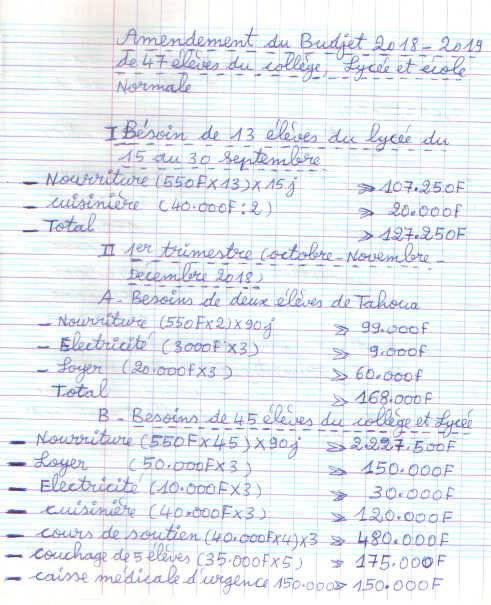 Amendement du Budget 2018-2019
de 47 élèves du collège, Lycée et école
Normale
I Bésoin de 13 élèves du lycée du
15 au 30 septembre
- Nourriture (550F×13)×15j » 107.250F
- cuisinière (40.000F:2) » 20.000F
- Total » 127.250F
II 1er trimestre (octobre-Novembre-
Décembre 2018)
A- Besoins de deux élèves de Tahoua
- Nourriture (550F×2)×90j » 99.000F
- Electricité (3000F×3) » 9.000F
- Loyer (20.000F×3) » 60.000F
Total » 168.000F
B- Besoins de 45 élèves du collège et Lycée
- Nourriture (550F×45)×90j » 2.227.500F
- Loyer (50.000F×3) » 150.000F
- Electricité (10.000F×3) » 30.000F
- cuisinière (40.000F×3) » 120.000F
- cours de soutien (40.000F×4)×3 » 480.000F
- couchage de 5 élèves (35.000F×5) » 175.000F
- caisse médicale d'urgence 150.000 » 150.000F